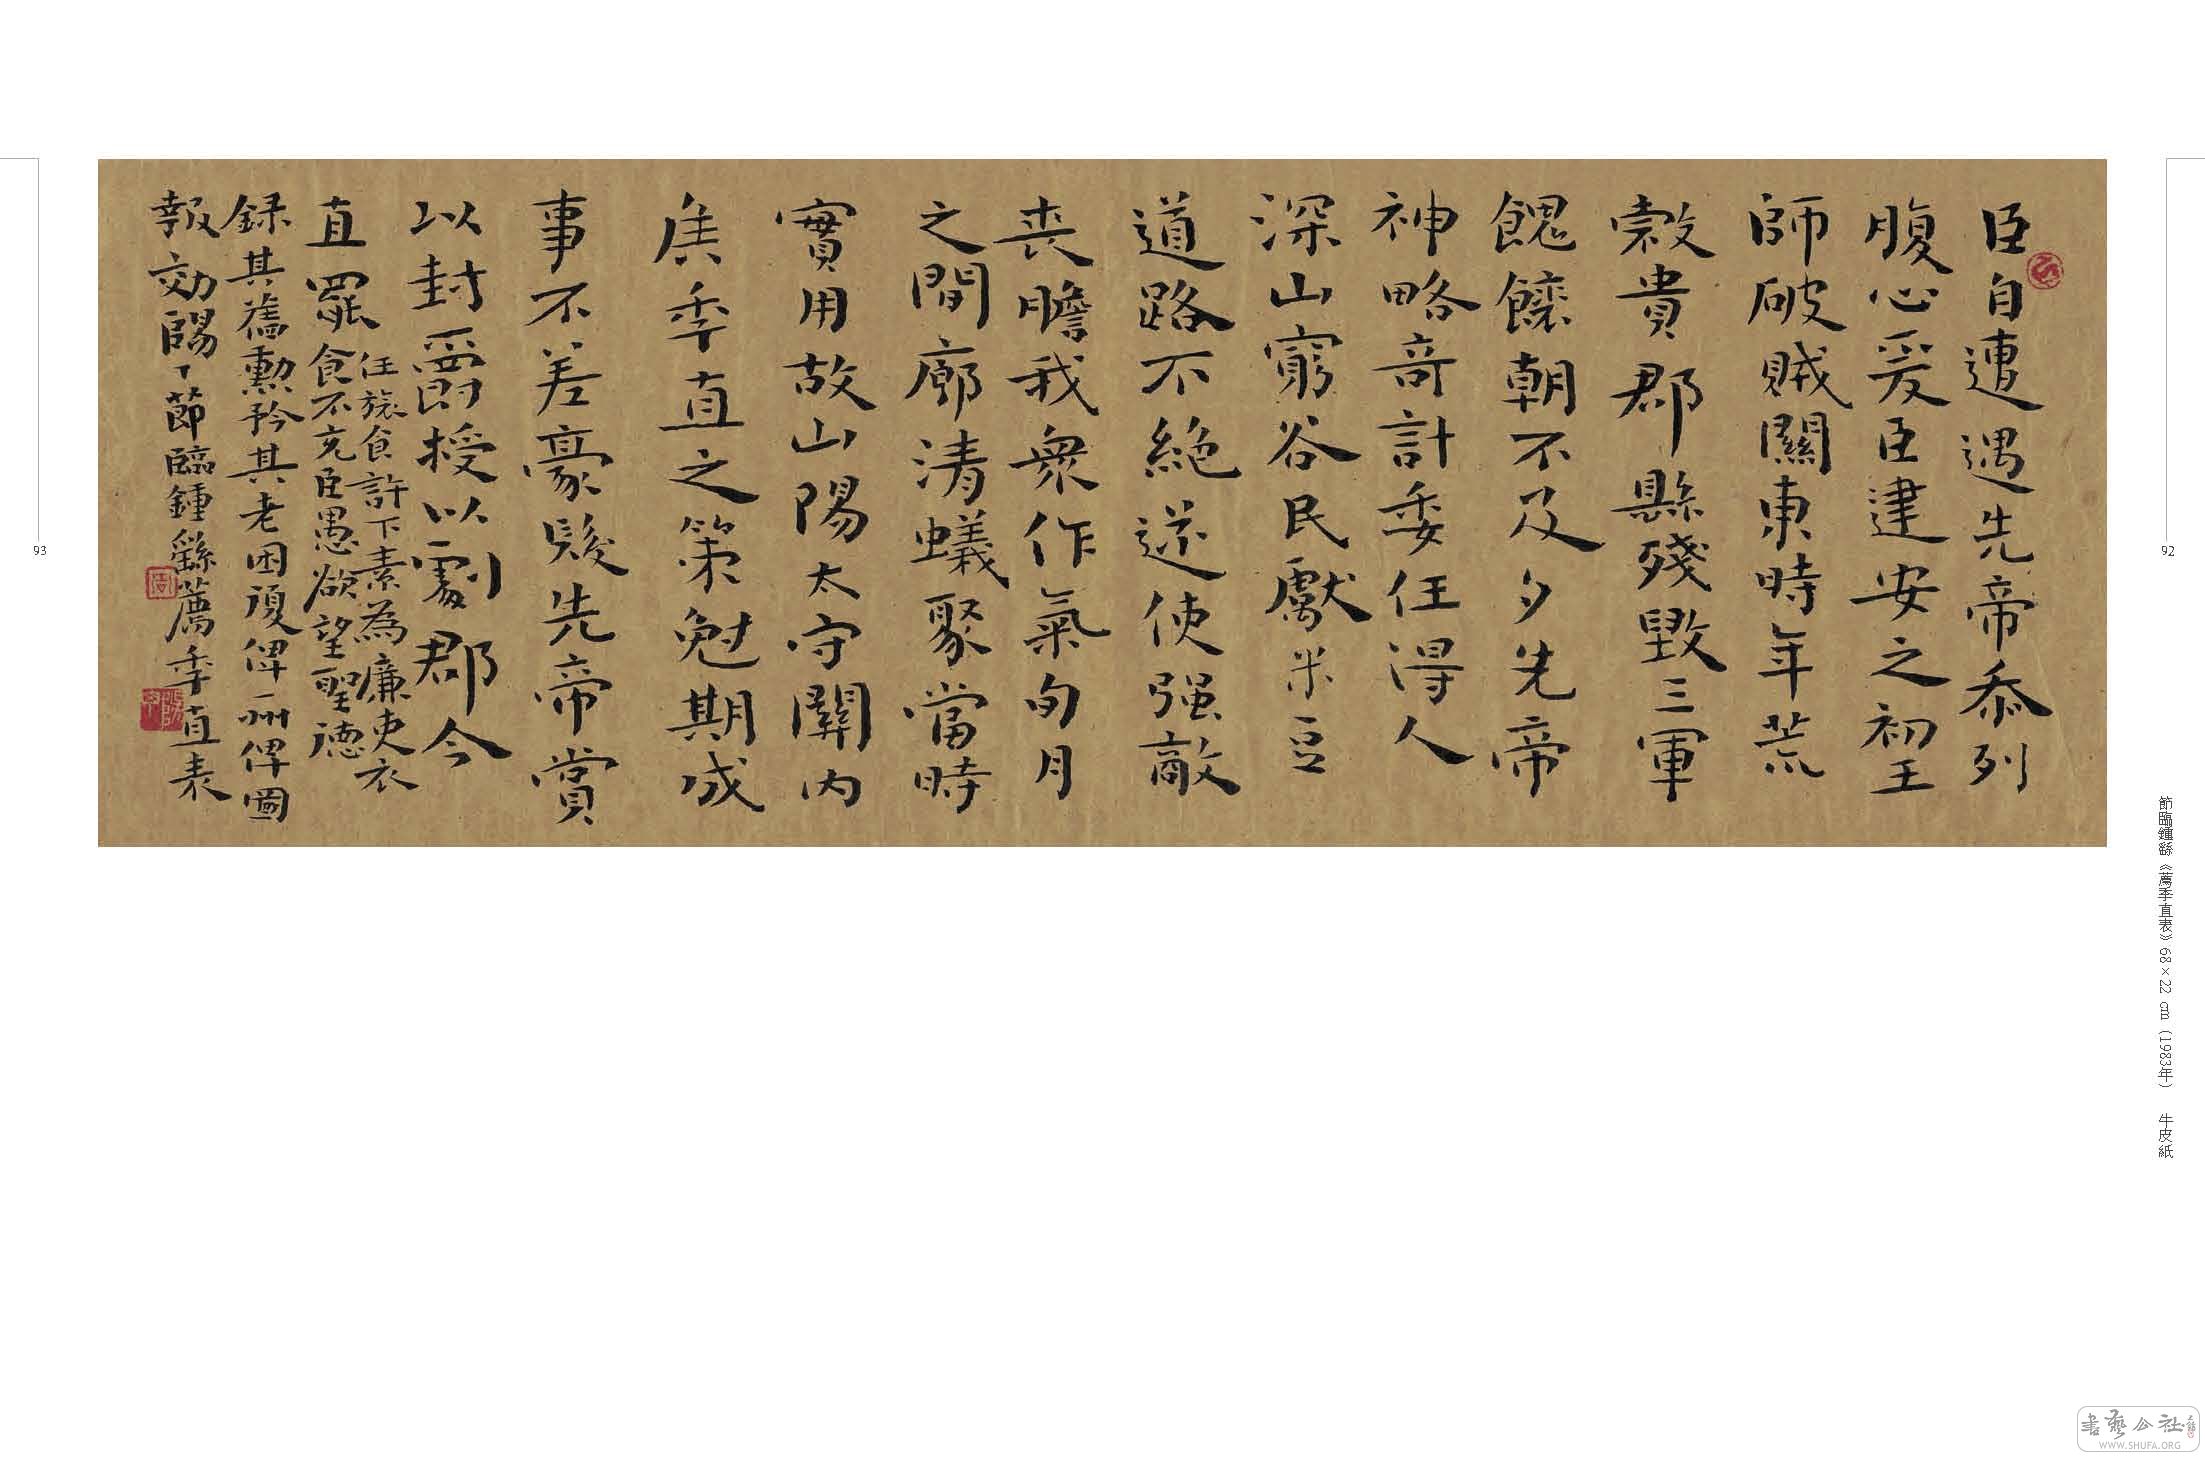 臣自遭遇先帝忝列
腹心爰臣建安之初王
師破賊關東時年荒
穀貴郡縣殘毀三軍
餽饟朝不及夕先帝
神略奇計委任得人
深山窮谷民獻米豆
道路不絶遂使强敵
喪膽我衆作氣旬月
之間廓清蟻聚當時
實用故山陽太守關內
侯季直之策尅期成
事不差豪髮先帝賞
以封爵授以劇郡今
直罷
任旅食許下素為廉吏衣
食不充臣愚欲望聖德
録其舊勳矜其老困復俾一州俾圖
報効 節臨鍾繇薦季直表
節臨鍾繇《薦季直表》68×22 cm（1983年） 牛皮紙
92
93
書藝公社
WWW.SHUFA.ORG